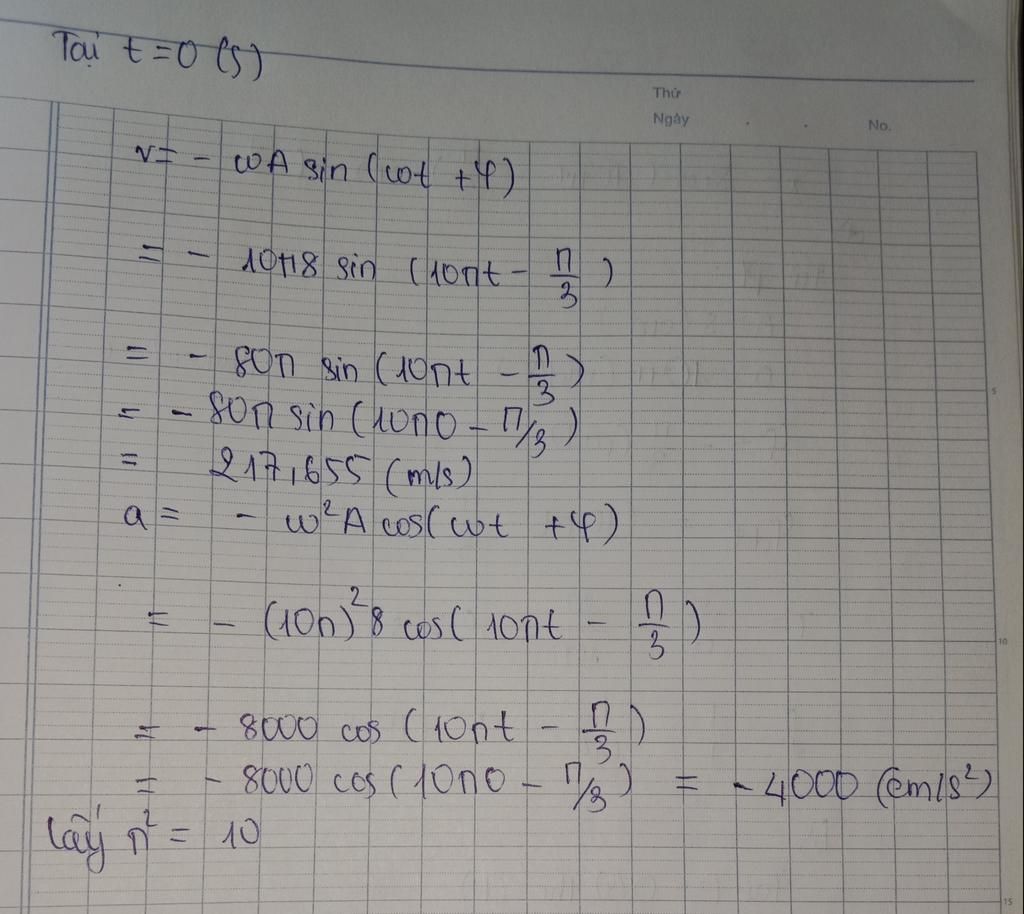 Tại t = 0 (s)
Thứ
Ngày . . No.
v = - ωA sin (ωt + φ)
= - 10π8 sin (10πt - π/3)
= - 80π sin (10πt - π/3)
5
= - 80π sin (10π0 - π/3)
= 217,655 (m/s)
a = - ω²A cos(ωt + φ)
= - (10π)²8 cos( 10πt - π/3)
10
= - 8000 cos (10πt - π/3)
= - 8000 cos (10π0 - π/3) = - 4000 (cm/s²)
lấy π² = 10
15